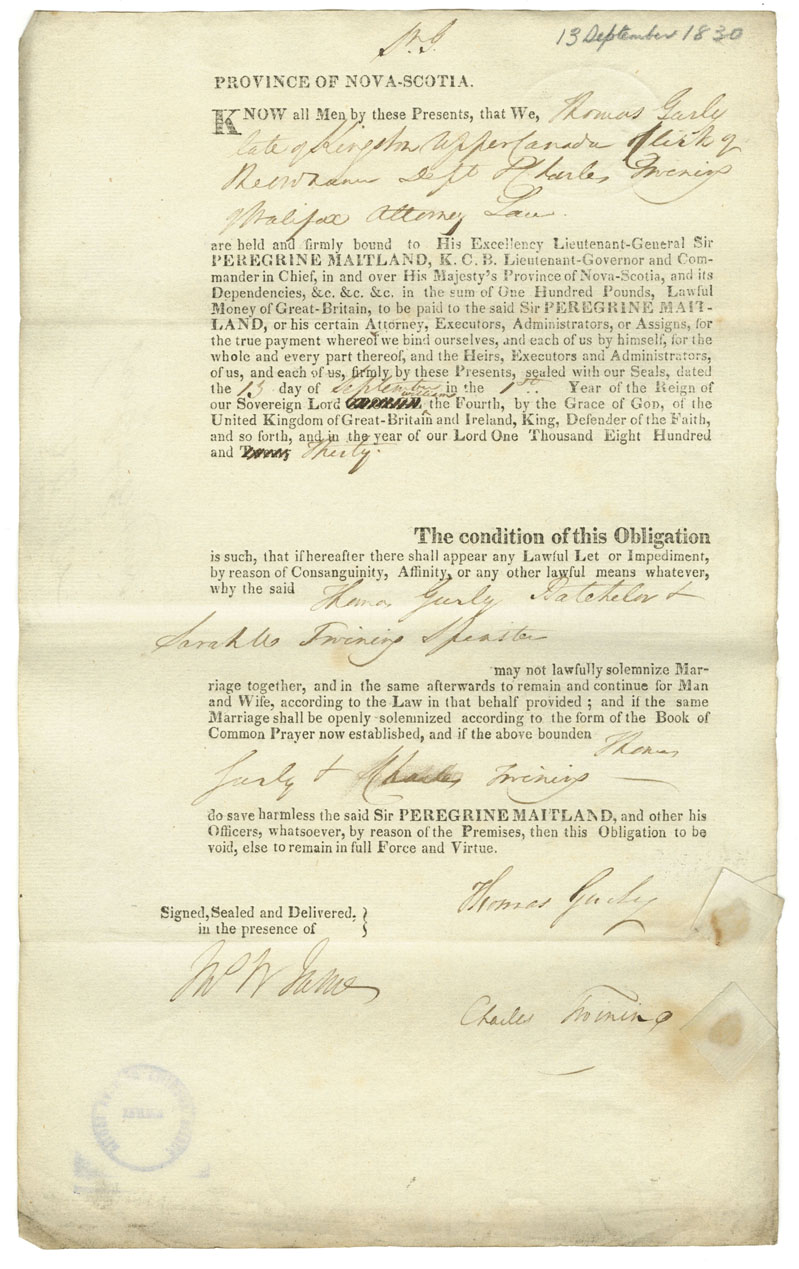 13 September 1830
PROVINCE OF NOVA-SCOTIA.
KNOW all Men by these Presents, that We, Thomas Gurly
late of Kingston Upper Canada Clerk of
Dept & Charles Twining
of Halifax Attorney Law.
are held and firmly bound to His Excellency Lieutenant-General Sir
PEREGRINE MAITLAND, K. C. B. Lieutenant-Governor and Com-
mander in Chief, in and over His Majesty's Province of Nova-Scotia, and its
Dependencies, &c. &c. &c. in the sum of One Hundred Pounds, Lawful
Money of Great-Britain, to be paid to the said Sir PEREGRINE MAIT-
LAND, or his certain Attorney, Executors, Administrators, or Assigns, for
the true payment whereof we bind ourselves, and each of us by himself, for the
whole and every part thereof, and the Heirs, Executors and Administrators,
of us, and each of us, firmly by these Presents, sealed with our Seals, dated
the 13 day of September in the 1st. Year of the Reign of
our Sovereign Lord William the Fourth, by the Grace of God, of the
United Kingdom of Great-Britain and Ireland, King, Defender of the Faith,
and so forth, and in the year of our Lord One Thousand Eight Hundred
and Thirty.
The condition of this Obligation
is such, that if hereafter there shall appear any Lawful Let or Impediment,
by reason of Consanguinity, Affinity, or any other lawful means whatever,
why the said Thomas Gurly Batchelor &
Sarah Twining Spinster
may not lawfully solemnize Mar-
riage together, and in the same afterwards to remain and continue for Man
and Wife, according to the Law in that behalf provided ; and if the same
Marriage shall be openly solemnized according to the form of the Book of
Common Prayer now established, and if the above bounden Thomas
Gurly & Charles Twining
do save harmless the said Sir PEREGRINE MAITLAND, and other his
Officers, whatsoever, by reason of the Premises, then this Obligation to be
void, else to remain in full Force and Virtue.
Thomas Gurly
Signed, Sealed and Delivered,
in the presence of
W James
Charles Twining